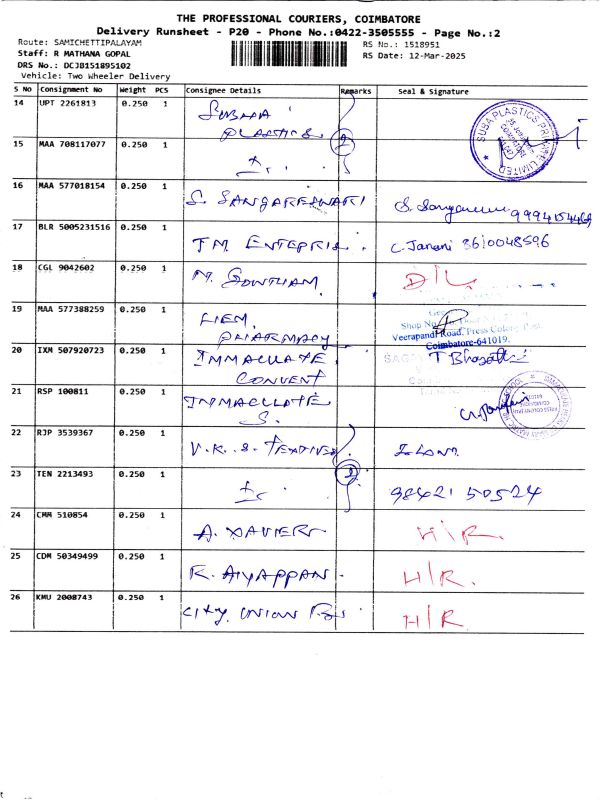 THE PROFESSIONAL COURIERS, COIMBATORE
Delivery Runsheet - P20 - Phone No.:0422-3505555 - Page No.:2
Route: SAMICHETTIPALAYAM
RS No.: 1518951
Staff: R MATHANA GOPAL
RS Date: 12-Mar-2025
DRS No.: DCJB151895102
Vehicle: Two Wheeler Delivery
S No Consignment No Weight PCS Consignee Details Remarks Seal & Signature
14 UPT 2261813 0.250 1 SUBHA
PLASTICS. 2
SUBA PLASTICS PRIVATE LIMITED
15 MAA 708117077 0.250 1
16 MAA 577018154 0.250 1 S. SANGARESWARI
17 BLR 5005231516 0.250 1 JM ENTEPRIS. C. Janani 3610048596
18 CGL 9042602 0.250 1 N. GOWTHAM D/L
19 MAA 577388259 0.250 1
PHARMACY
Shop No
Veerapandi Road, Press Colony Post
Coimbatore-641019.
20 IXM 507920723 0.250 1 IMMACULATE
CONVENT
21 RSP 100811 0.250 1 IMMACULATE
S.
22 RJP 3539367 0.250 1 V.K.S. TEXTILES
23 TEN 2213493 0.250 1 2 98421 50524
24 CMM 510854 0.250 1 A. XAVIER H/R.
25 CDM 50349499 0.250 1 K. AIYAPPAN. H/R.
26 KMU 2008743 0.250 1 CITY UNION H/R